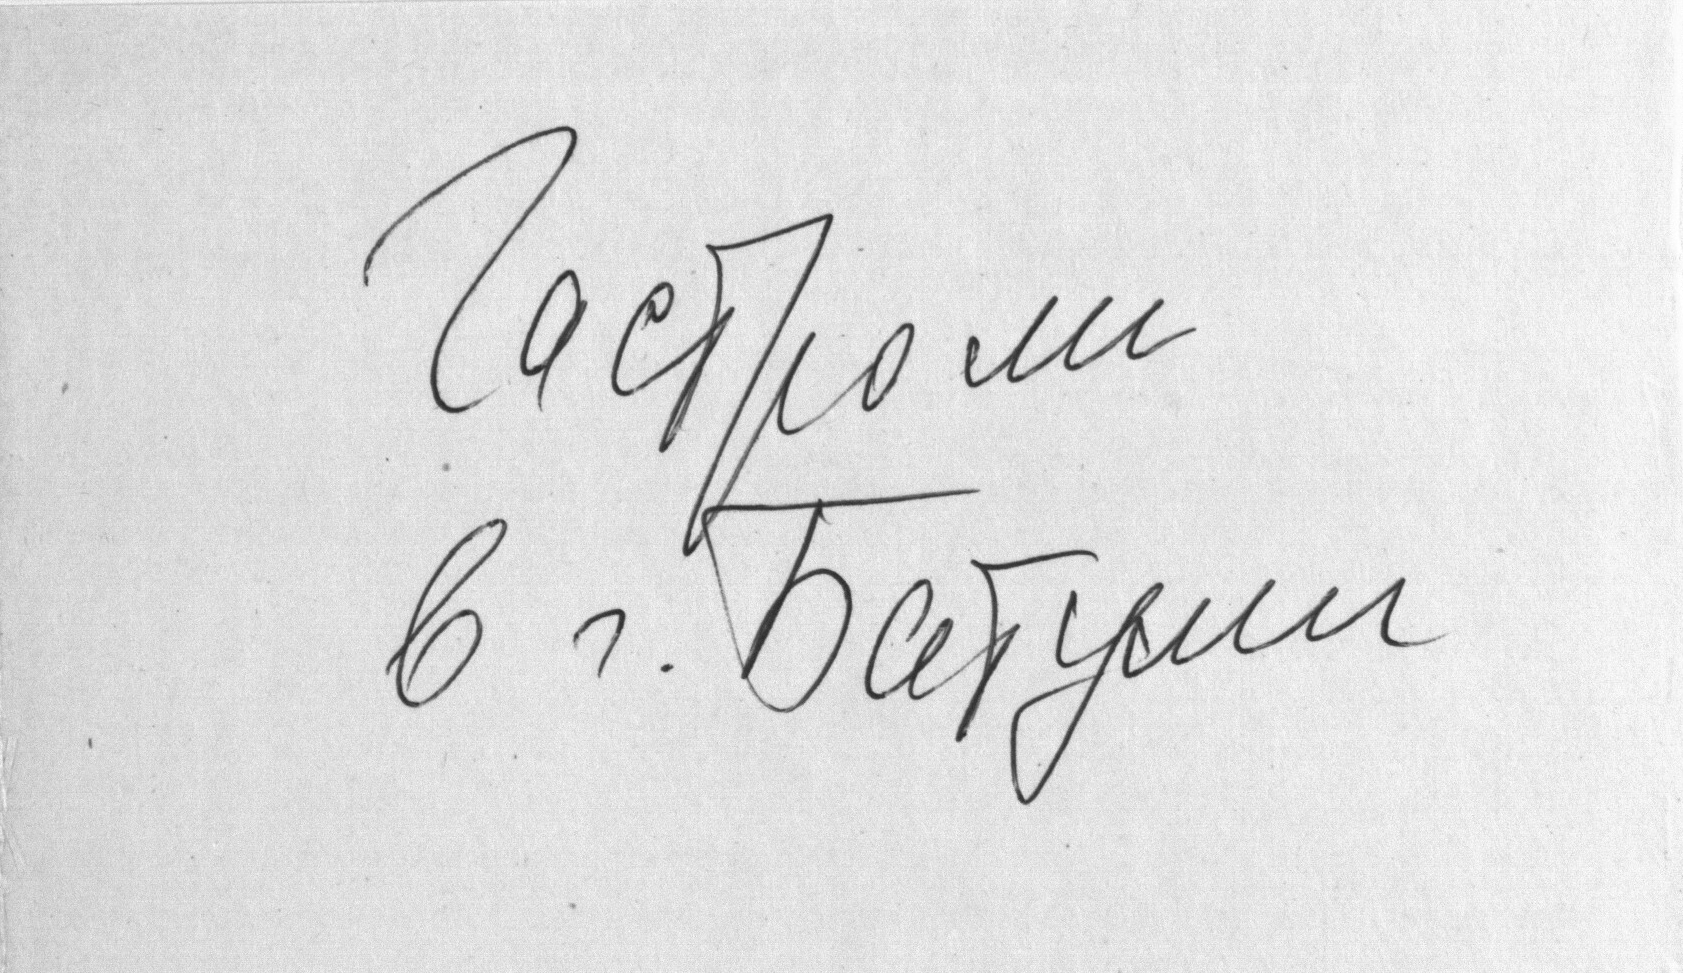 Гастроли
в г. Батуми